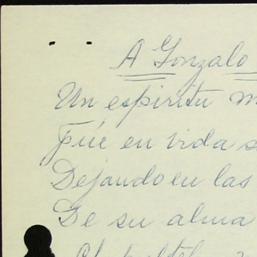 A Gonzalo
Un espíritu
Fué en vida
Dejando en las
De su alma